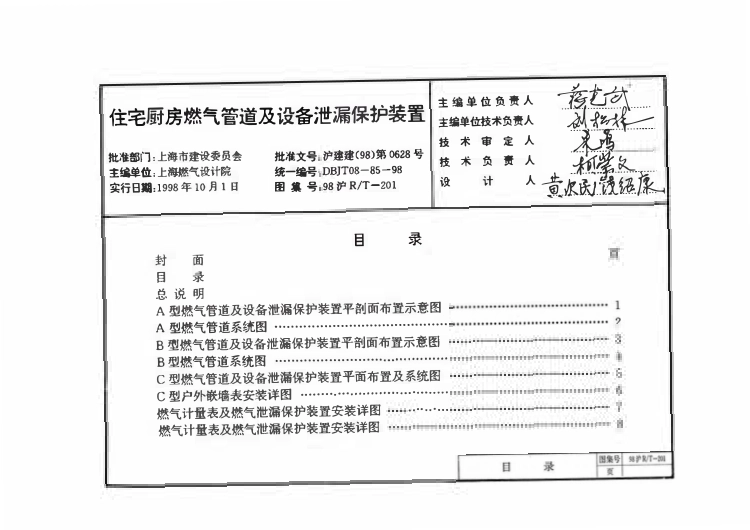 住宅厨房燃气管道及设备泄漏保护装置
批准部门:上海市建设委员会 批准文号:沪建建(98)第0628号
主编单位:上海燃气设计院 统一编号:DBJT08-85-98
实行日期:1998年10月1日 图集号:98沪R/T-201
主编单位负责人
主编单位技术负责人
技术审定人
技术负责人
设计人
目录
封面 页
目录
总说明
A型燃气管道及设备泄漏保护装置平剖面布置示意图 1
A型燃气管道系统图 2
B型燃气管道及设备泄漏保护装置平剖面布置示意图 3
B型燃气管道系统图 4
C型燃气管道及设备泄漏保护装置平面布置及系统图 5
C型户外嵌墙表安装详图 6
燃气计量表及燃气泄漏保护装置安装详图 7
燃气计量表及燃气泄漏保护装置安装详图 8
目录 图集号 98沪R/T-201
页